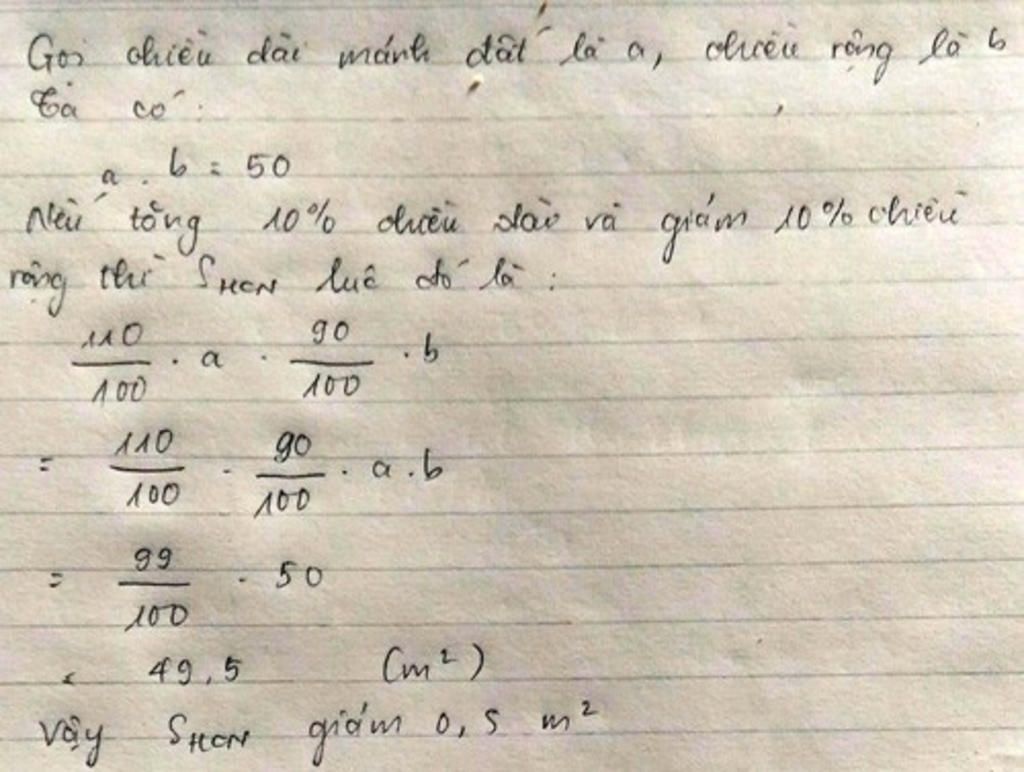 Gọi chiều dài mảnh đất là a, chiều rộng là b
Ta có:
a . b = 50
Nếu tăng 10% chiều dài và giảm 10% chiều
rộng thì SHCN lúc đó là:
110/100 . a . 90/100 . b
= 110/100 . 90/100 . a . b
= 99/100 . 50
= 49,5 (m²)
Vậy SHCN giảm 0,5 m²